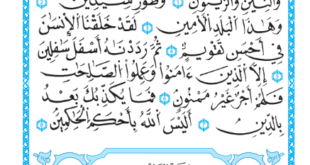 وَالتِّينِ وَالزَّيْتُونِ ۝ وَطُورِ سِينِينَ ۝
وَهَٰذَا الْبَلَدِ الْأَمِينِ ۝ لَقَدْ خَلَقْنَا الْإِنسَٰنَ
فِي أَحْسَنِ تَقْوِيمٍ ۝ ثُمَّ رَدَدْنَٰهُ أَسْفَلَ سَٰفِلِينَ
۝ إِلَّا الَّذِينَ ءَامَنُوا وَعَمِلُوا الصَّٰلِحَٰتِ
فَلَهُمْ أَجْرٌ غَيْرُ مَمْنُونٍ ۝ فَمَا يُكَذِّبُكَ بَعْدُ
بِالدِّينِ ۝ أَلَيْسَ اللَّهُ بِأَحْكَمِ الْحَٰكِمِينَ ۝